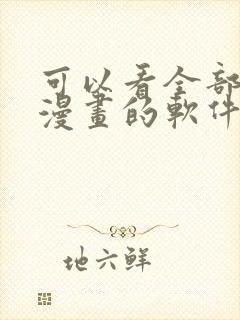 可以看全部
漫畫的軟件
地六鮮